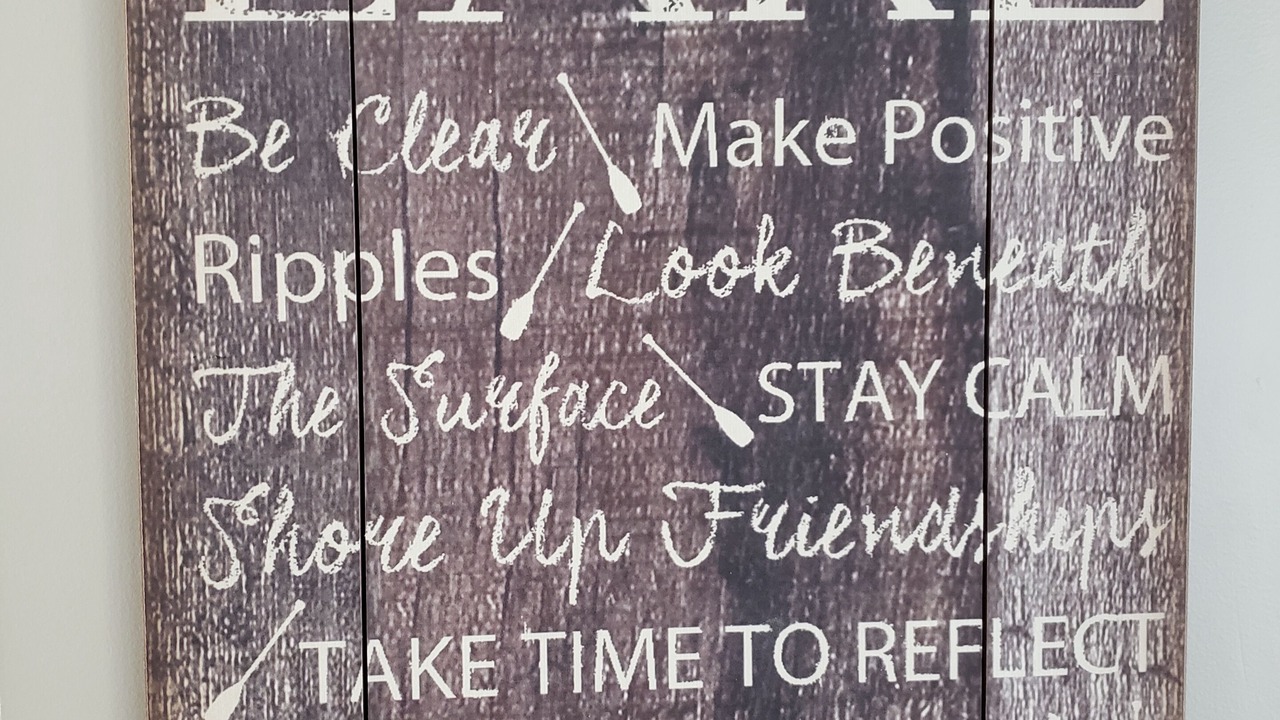 LAKE
Be Clear Make Positive
Ripples Look Beneath
The Surface STAY CALM
Shore Up Friendships
TAKE TIME TO REFLECT